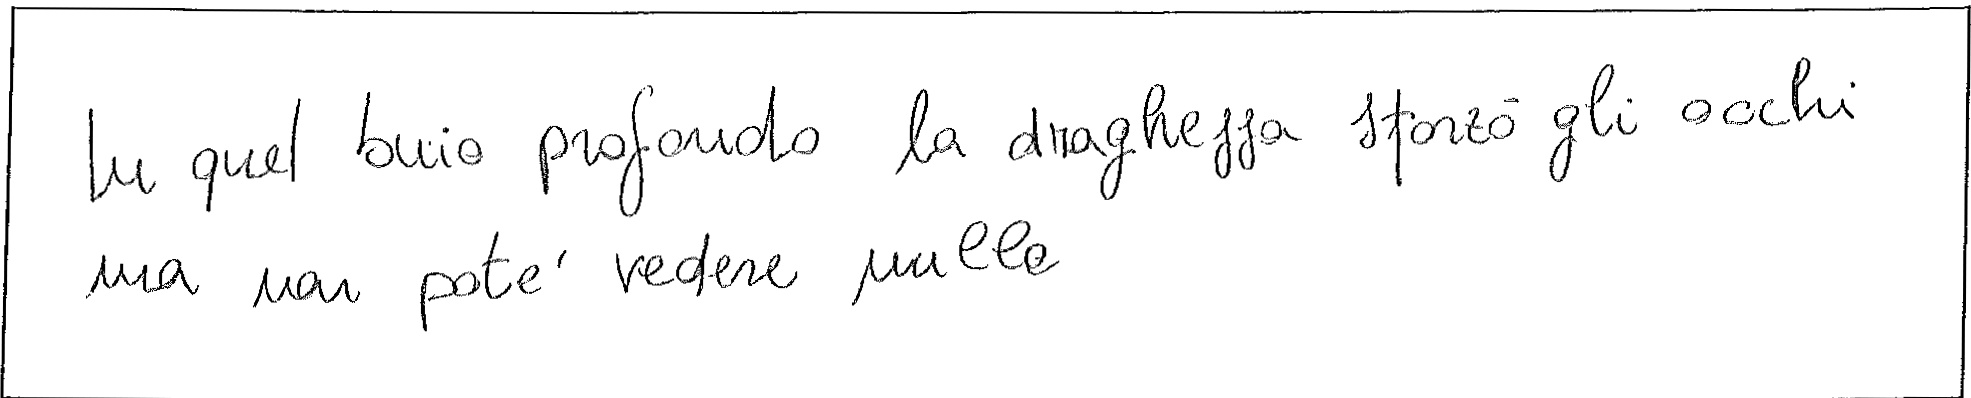 In quel buio profondo la draghessa sforzò gli occhi
ma non pote' vedere nulla